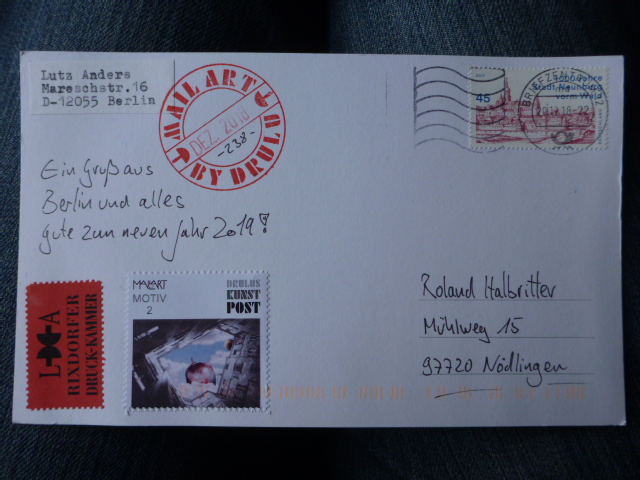 Lutz Anders
Mareschstr.16
D-12055 Berlin
MAIL ART
BY DRULA
DEZ. 2018
-238-
45
1000 Jahre
Stadt Neunburg
vorm Wald
BRIEFZENTRUM
Ein Gruß aus
Berlin und alles
gute zum neuen Jahr 2019!
L A
RIXDORFER
DRUCK-KAMMER
MAILART
MOTIV
2
DRULUS
KUNST
POST
Roland Halbritter
Mühlweg 15
97720 Nüdlingen